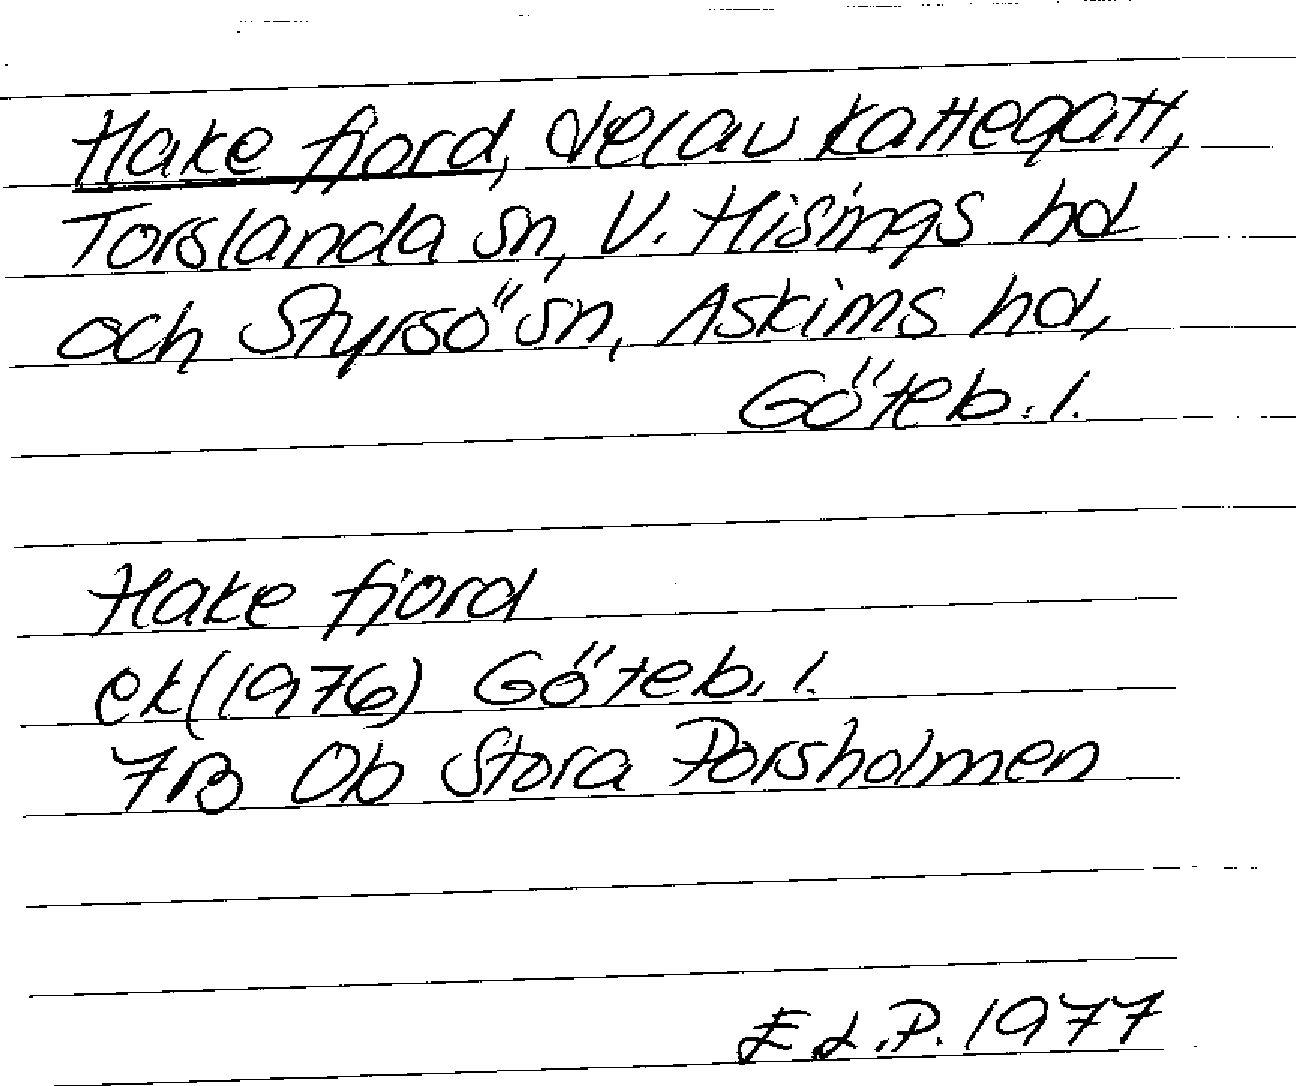 Hake fjord, del av Kattegatt,
Torslanda sn, V. Hisings hd
och Styrsö sn, Askims hd,
Göteb. l.
Hake fjord
ek (1976) Göteb. l.
7B 0b Stora Porsholmen
E L.P. 1977